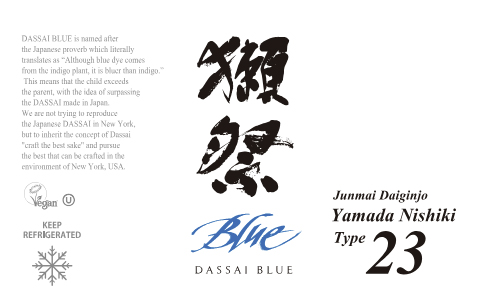 DASSAI BLUE is named after
the Japanese proverb which literally
translates as “Although blue dye comes
from the indigo plant, it is bluer than indigo.”
This means that the child exceeds
the parent, with the idea of surpassing
the DASSAI made in Japan.
We are not trying to reproduce
the Japanese DASSAI in New York,
but to inherit the concept of Dassai
"craft the best sake" and pursue
the best that can be crafted in the
environment of New York, USA.
Vegan U
KEEP
REFRIGERATED
獺
祭
Blue
DASSAI BLUE
Junmai Daiginjo
Yamada Nishiki
Type 23